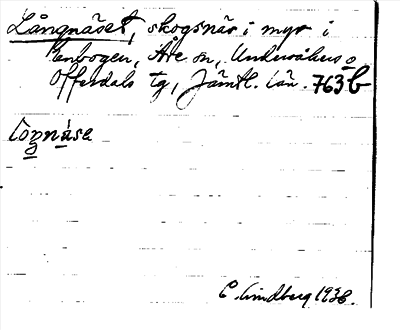 Långnäset, skogsnäs i myr i
Enbogen, Åre sn, Undersåkers o
Offerdals tg, Jämtl. län. 763b
loŋnäsa
C Lindberg 1936.